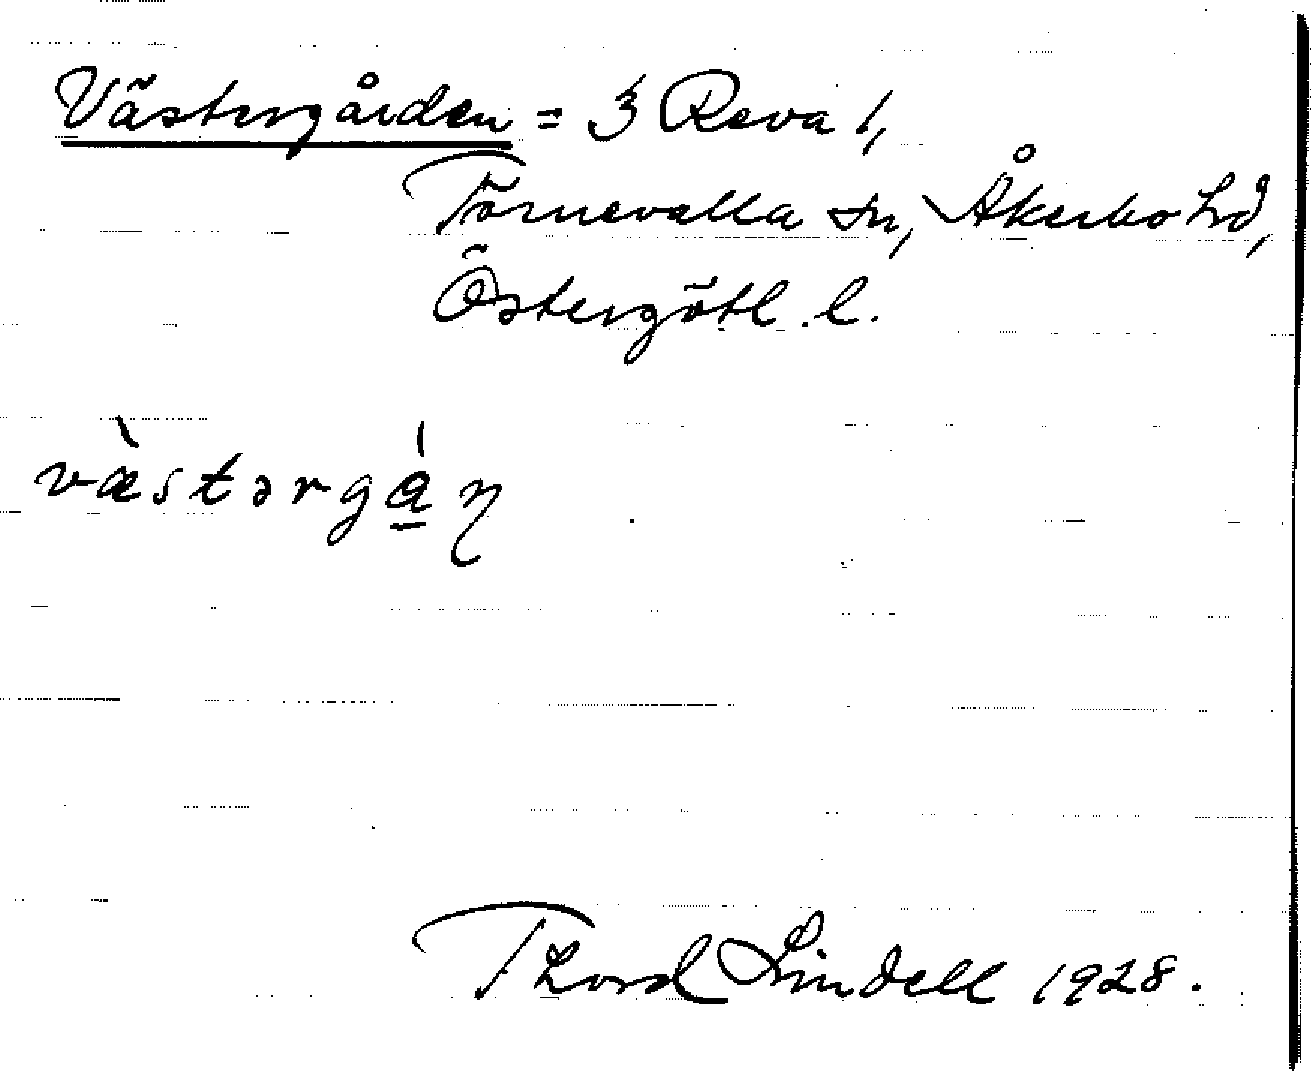 Västergården = 3 Reva 1,
Törnevalla sn, Åkerbo hd,
Östergötl. l.
væ̀stərgá̱ɳ
Thord Lindell 1928.